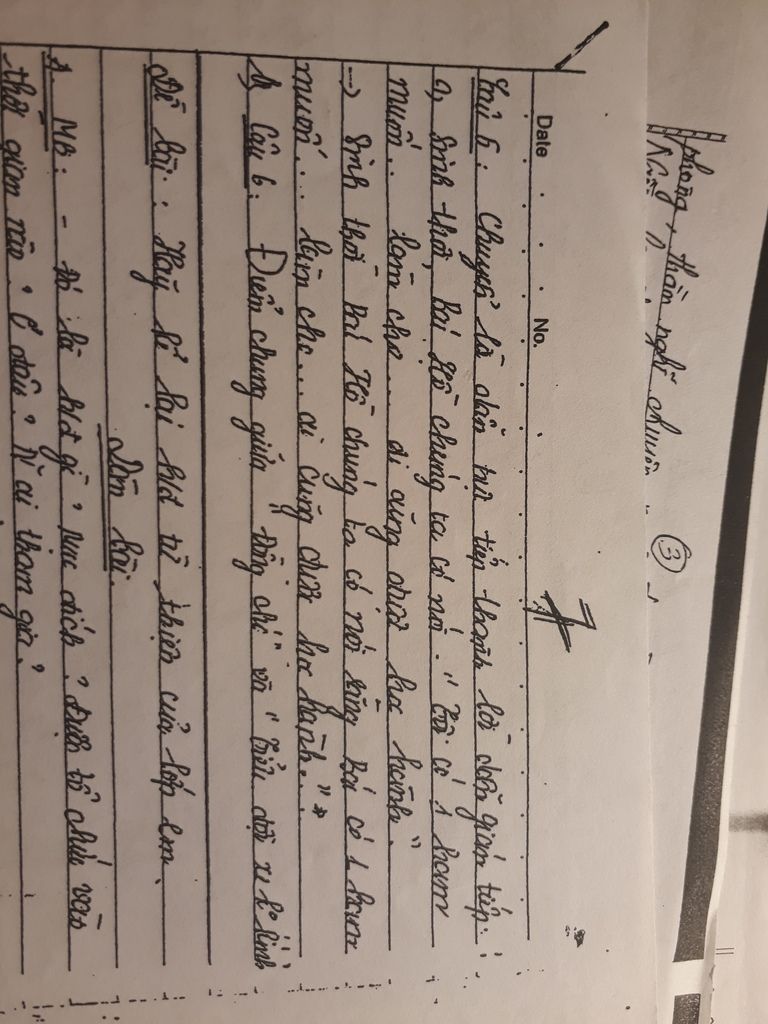 phòng, thầm nghĩ chuyện
3
Date No.
7
Câu 5: Chuyển lời dẫn trực tiếp thành lời dẫn gián tiếp.
a, Sinh thời, Bác Hồ chúng ta có nói: "Tôi có 1 ham
muốn... làm cho... ai cũng được học hành."
→ Sinh thời Bác Hồ chúng ta có nói rằng Bác có 1 ham
muốn... làm cho... ai cũng được học hành...
b, Câu 6: Điểm chung giữa "Đồng chí" và "Tiểu đội xe k° kính
Đề bài: Hãy kể lại hđ từ thiện của lớp em.
Dàn bài
1. MB: - Đó là hđ gì? Mục đích? Được tổ chức vào
thời gian nào? Ở đâu? N~ ai tham gia?